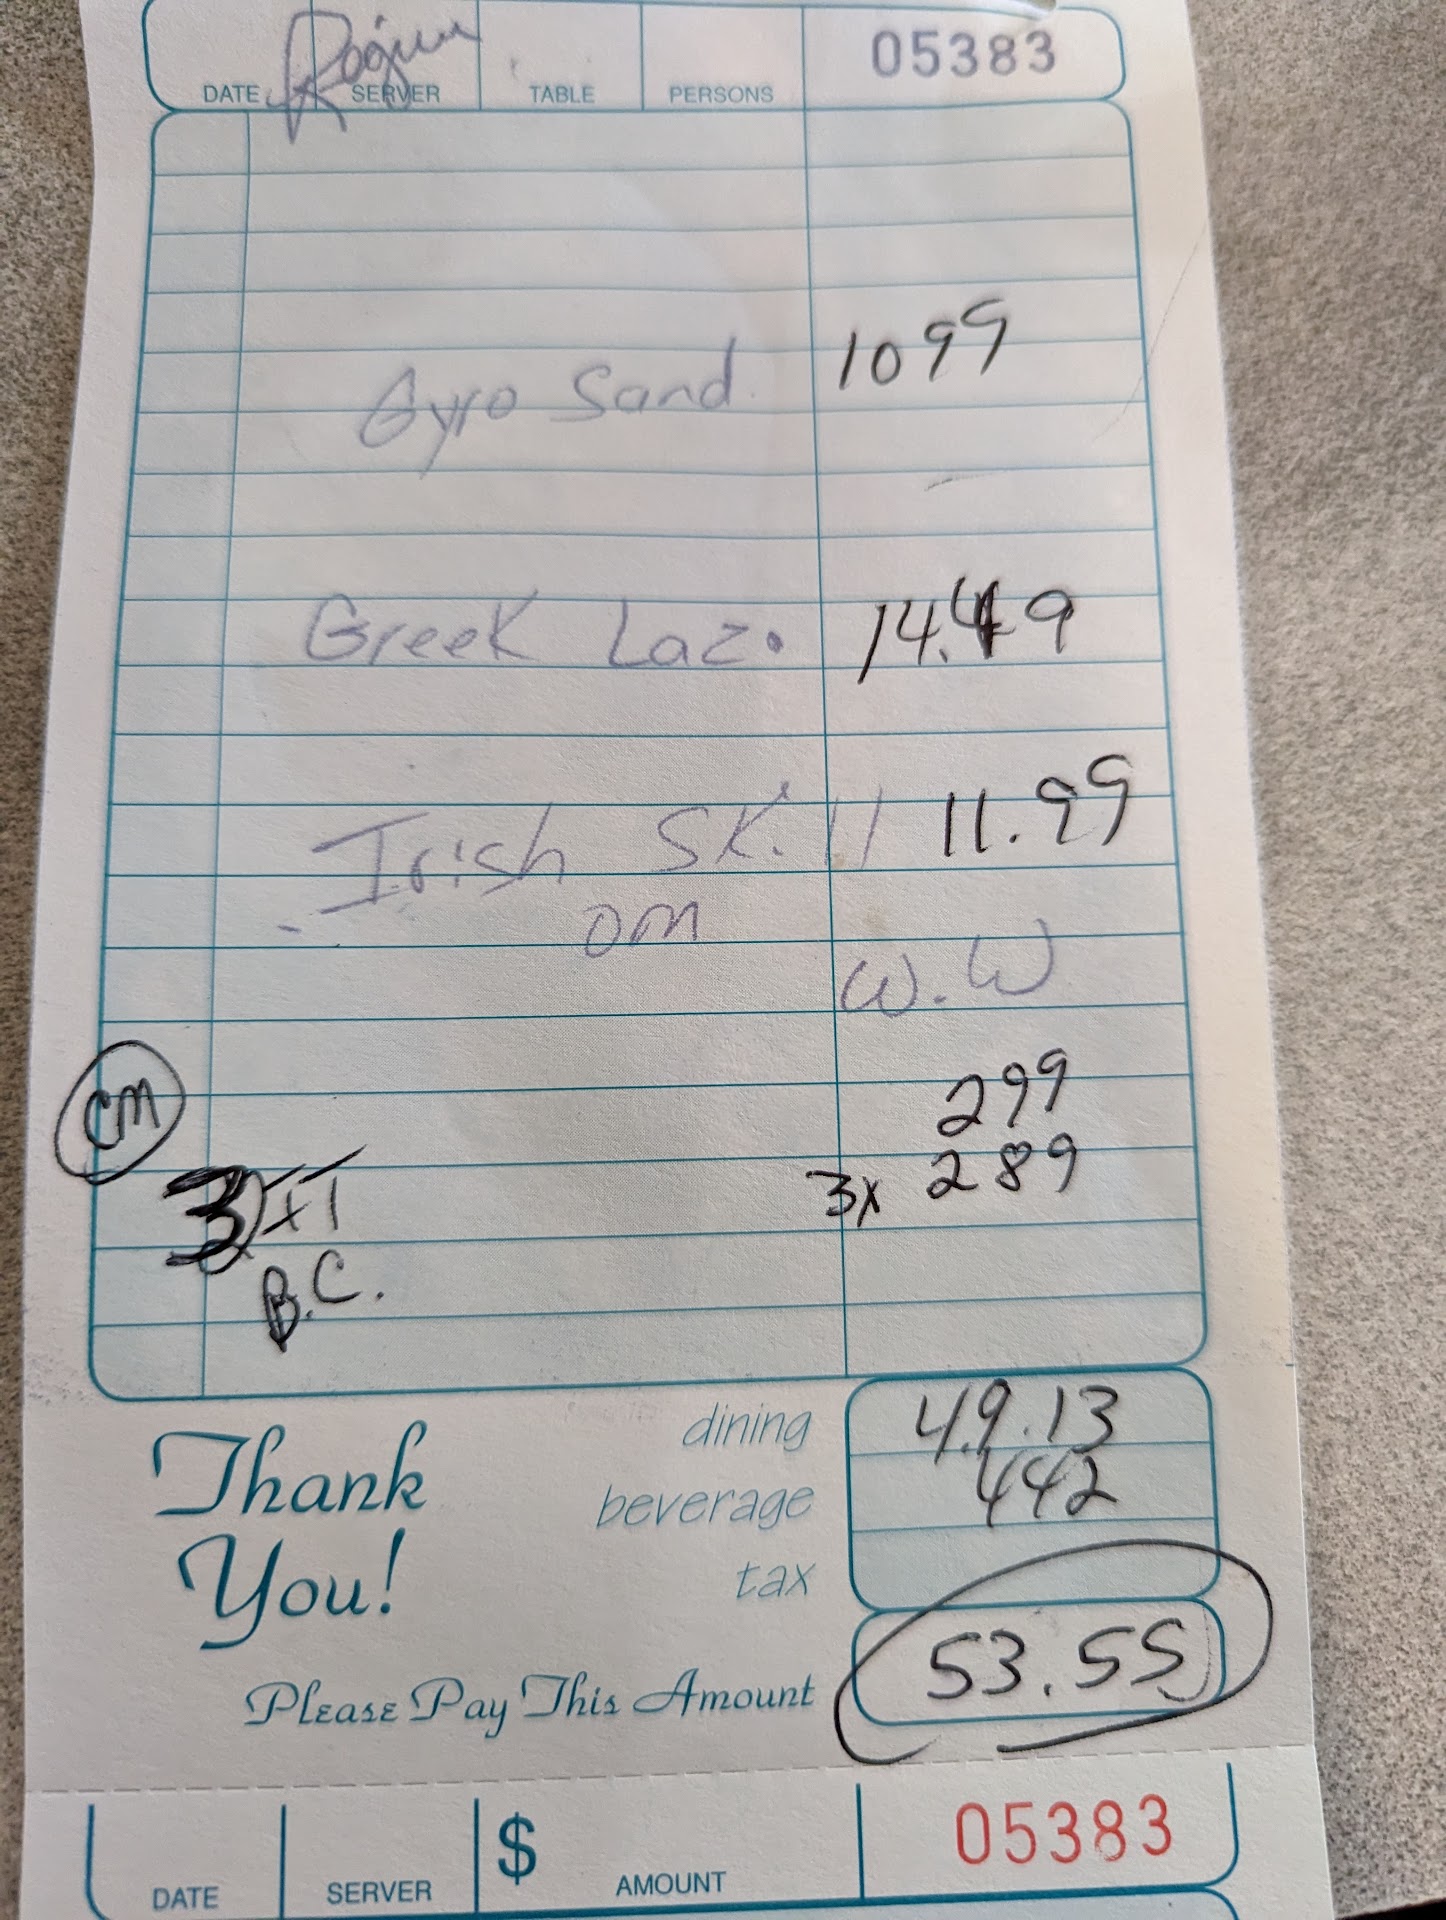 05383
DATE SERVER TABLE PERSONS
Gyro Sand. 1099
Greek Laz. 14.49
Irish SK. 11.99
om
W.W
CM 299
3 IT 3x 289
B.C.
Thank You!
dining 49.13
beverage 442
tax
Please Pay This Amount 53.55
05383
DATE SERVER $ AMOUNT